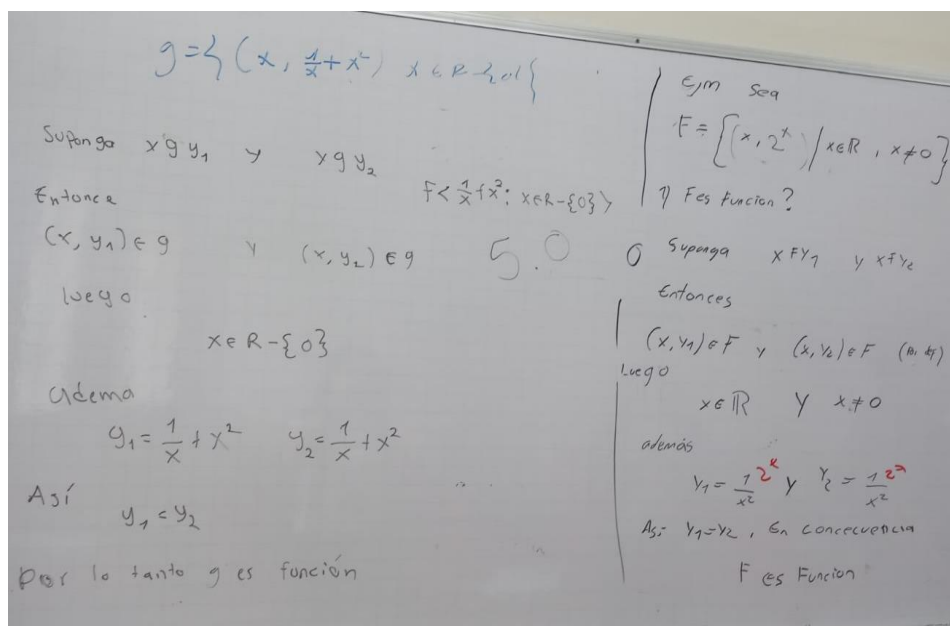 g={(x, 1/x + x²) x ∈ R-{0}}
Suponga x g y₁ y x g y₂
F< 1/x + x²; x∈R-{0}>
Entonce
(x, y₁) ∈ g y (x, y₂) ∈ g
5.0
luego
x ∈ R-{0}
adema
y₁ = 1/x + x² y₂ = 1/x + x²
Así
y₁ = y₂
por lo tanto g es función
Ejm Sea
F = {(x, 2ˣ) / x∈R, x≠0}
1) F es Funcion?
Suponga x F y₁ y x F y₂
Entonces
(x, y₁) ∈ F y (x, y₂) ∈ F
Luego
x ∈ ℝ y x ≠ 0
además
y₁ = 1/x² 2ˣ y y₂ = 1/x²
Asi y₁=y₂, En concecuencia
F es Funcion